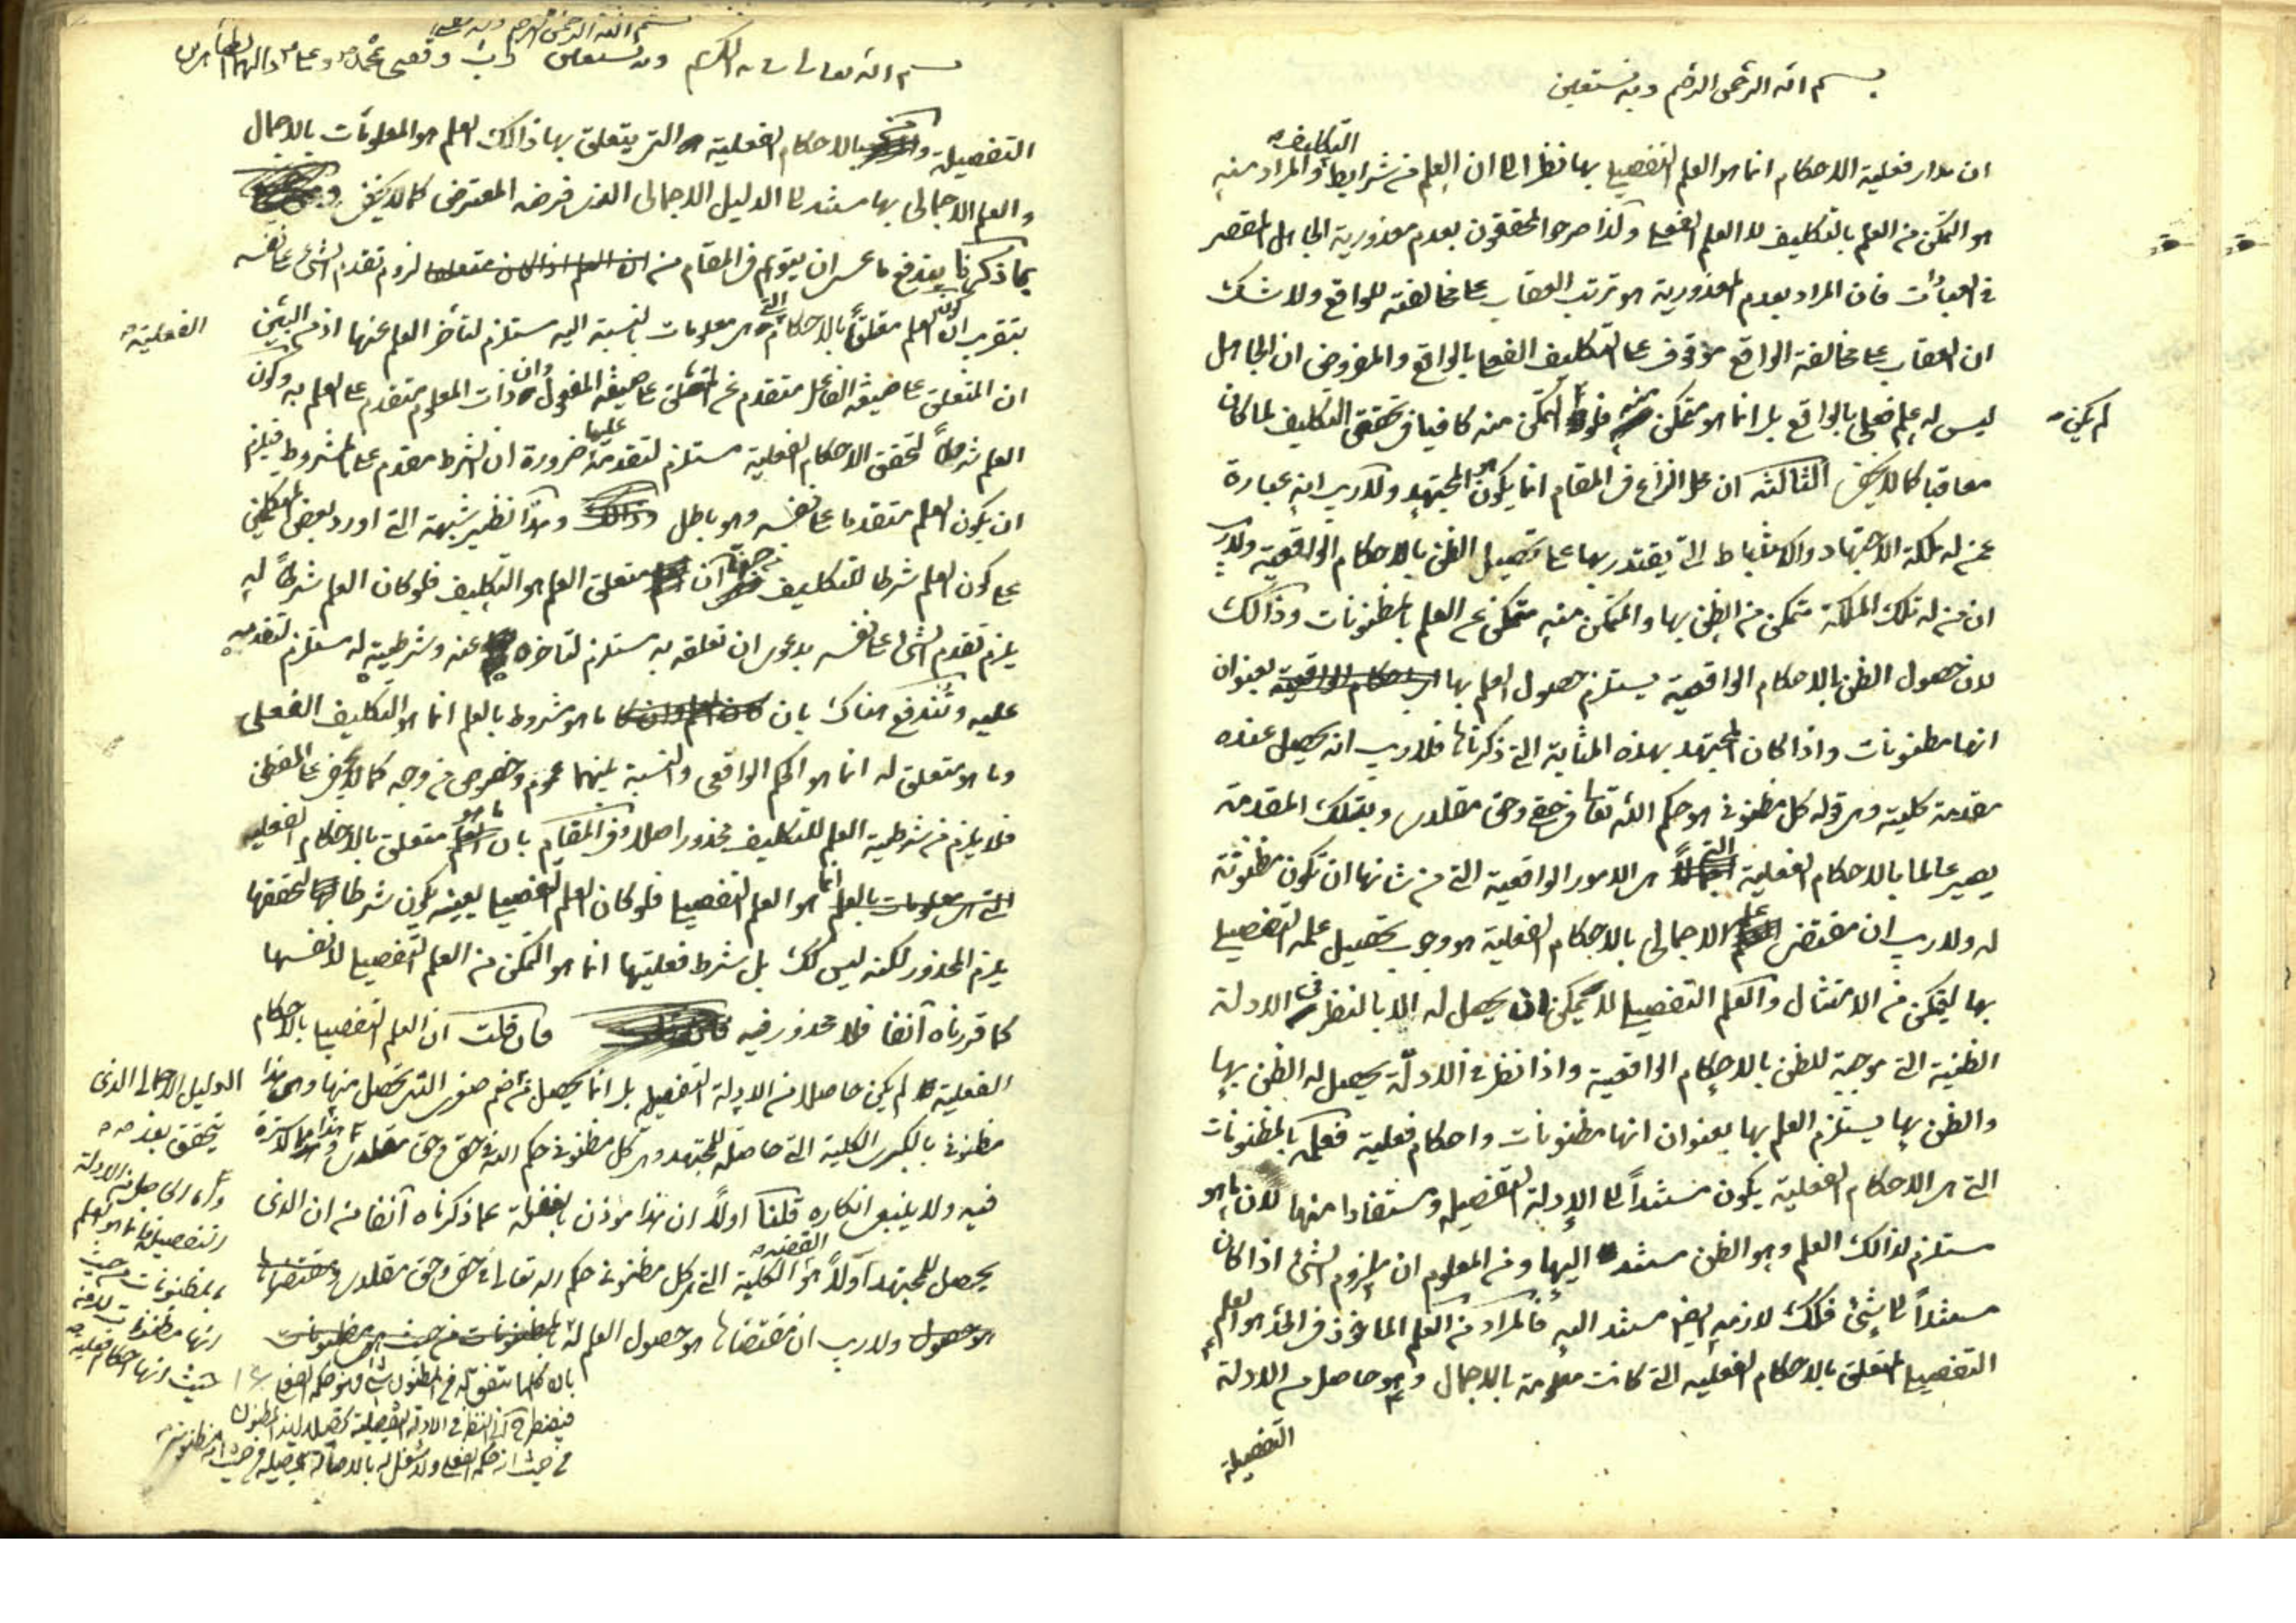 بسم الله الرحمن الرحيم وبه نستعين
ان مدار فعلية الاحكام انما هو العلم التفصيلي بها نظرا الى ان العلم من شرايط التكليف والمراد منه
هو التمكن من العلم بالتكليف لا العلم الفعلي ولذا صرحوا المحققون بعدم معذورية الجاهل المقصر
في العبادات فان المراد بعدم المعذورية هو ترتب العقاب على مخالفته للواقع ولا شك
ان العقاب على مخالفة الواقع موقوف على التكليف الفعلي بالواقع والمفروض ان الجاهل
ليس له علم فعلي بالواقع بل انما هو متمكن منه فلو لم يكن التمكن منه كافيا في تحقق التكليف لما كان
معاقبا كما لا يخفى الثالثة ان محل النزاع في المقام انما يكون هو المجتهد ولا ريب انه عبارة
عمن له ملكة الاجتهاد والاستنباط التي يقتدر بها على تحصيل الظن بالاحكام الواقعية ولا ريب
ان من له تلك الملكة متمكن من الظن بها والمتمكن منه متمكن عن العلم بالمظنونات وذالك
لان حصول الظن بالاحكام الواقعية يستلزم حصول العلم بها بعنوان
انها مظنونات واذا كان المجتهد بهذه المثابة التي ذكرناها فلا ريب انه يحصل عنده
مقدمة كلية وهي قوله كل مظنوني هو حكم الله تعالى في حقي وحق مقلدي وبتلك المقدمة
يصير عالما بالاحكام الفعلية التي هي الامور الواقعية التي من شانها ان تكون مظنونة
له ولا ريب ان مقتضى علمه الاجمالي بالاحكام الفعلية هو وجوب تحصيل علمه التفصيلي
بها ليتمكن من الامتثال والعلم التفصيلي لا يمكن ان يحصل له الا بالنظر في الادلة
الظنية التي موجبة للظن بالاحكام الواقعية واذا نظر في الادلة يحصل له الظن بها
والظن بها يستلزم العلم بها بعنوان انها مظنونات واحكام فعلية فعلمه بالمظنونات
التي هي الاحكام الفعلية يكون مستندا الى الادلة التفصيلية ومستفادا منها لان ما هو
مستلزم لذالك العلم وهو الظن مستند اليها ومن المعلوم ان ملزوم الشئ اذا كان
مستندا الى شئ فكك لازمه ايضا مستند اليه فالمراد من العلم الماخوذ في الحد هو العلم
التفصيلي المتعلق بالاحكام الفعلية التي كانت معلومة بالاجمال وهو حاصل من الادلة
التفصيلية
بسم الله الرحمن الرحيم وبه نستعين
التفصيلية بالاحكام الفعلية التي يتعلق بها ذالك العلم هو المعلومات بالاجمال
والعلم الاجمالي بها مستند الى الدليل الاجمالي الذي فرضه المعترض كما لا يخفى
بما ذكرنا يندفع ما عسى ان يتوهم في المقام من لزوم تقدم الشئ على نفسه
بتقريب ان كون العلم متعلقا بالاحكام الفعلية التي هي معلومات بالنسبة اليه مستلزم لتأخر العلم عنها اذ من البين
ان المتعلق على صيغة الفاعل متقدم عن المتعلق على صيغة المفعول وان ذات المعلوم متقدم على العلم به وكون
العلم شرطا لتحقق الاحكام الفعلية مستلزم لتقدمه عليها ضرورة ان الشرط مقدم على المشروط فيلزم
ان يكون العلم متقدما على نفسه وهو باطل وهذا نظير شبهة التي اورد بعض المتكلمين
على كون العلم شرطا للتكليف من جهة ان متعلق العلم هو التكليف فلو كان العلم شرطا له
يلزم تقدم الشئ على نفسه بدعوى ان تعلقه به مستلزم لتاخره عنه وشرطيته له مستلزم لتقدمه
عليه وتندفع هناك بان ما هو مشروط بالعلم انما هو التكليف الفعلي
وما هو متعلق له انما هو الحكم الواقعي والنسبة بينهما عموم وخصوص من وجه كما لا يخفى على المتفطن
فلا يلزم من شرطية العلم للتكليف محذور اصلا وفي المقام بان ما هو متعلق بالاحكام الفعلية
انما هو العلم التفصيلي فلو كان العلم التفصيلي بعينه يكون شرطا لتحققها
يلزم المحذور لكنه ليس كك بل شرط فعليتها انما هو التمكن من العلم التفصيلي لا نفسها
كما قررناه آنفا فلا محذور فيه فان قلت ان العلم التفصيلي بالاحكام
الفعلية لم يكن حاصلا من الادلة التفصيلية بل انما يحصل من ضم صغرى التي تحصل منها وهي هذا
مظنوني بالكبرى الكلية التي حاصلة للمجتهد وهي كل مظنوني حكم الله في حقي وحق مقلدي وهذا مما لا سترة
فيه ولا ينبغي انكاره قلنا اولا ان هذا مؤذن بالغفلة عما ذكرناه آنفا من ان الذي
يحصل للمجتهد اولا هو القضية الكلية التي هي كل مظنوني حكم الله تعالى في حقي وحق مقلدي
ولا ريب ان مقتضاها هو حصول العلم له
بان كلما يتفق له من المظنون شئ فهو حكمه الفعلي
الدليل الاجمالي الذي